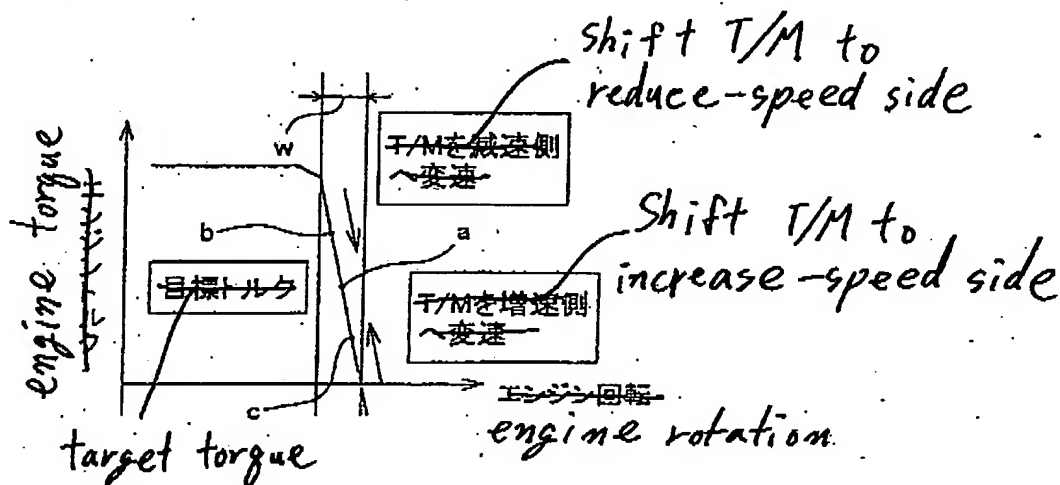 shift T/M to
reduce-speed side
w
T/Mを減速側
へ変速
engine torque
b
a
Shift T/M to
increase-speed side
目標トルク
T/Mを増速側
へ変速
エンジン回転
c
engine rotation
target torque